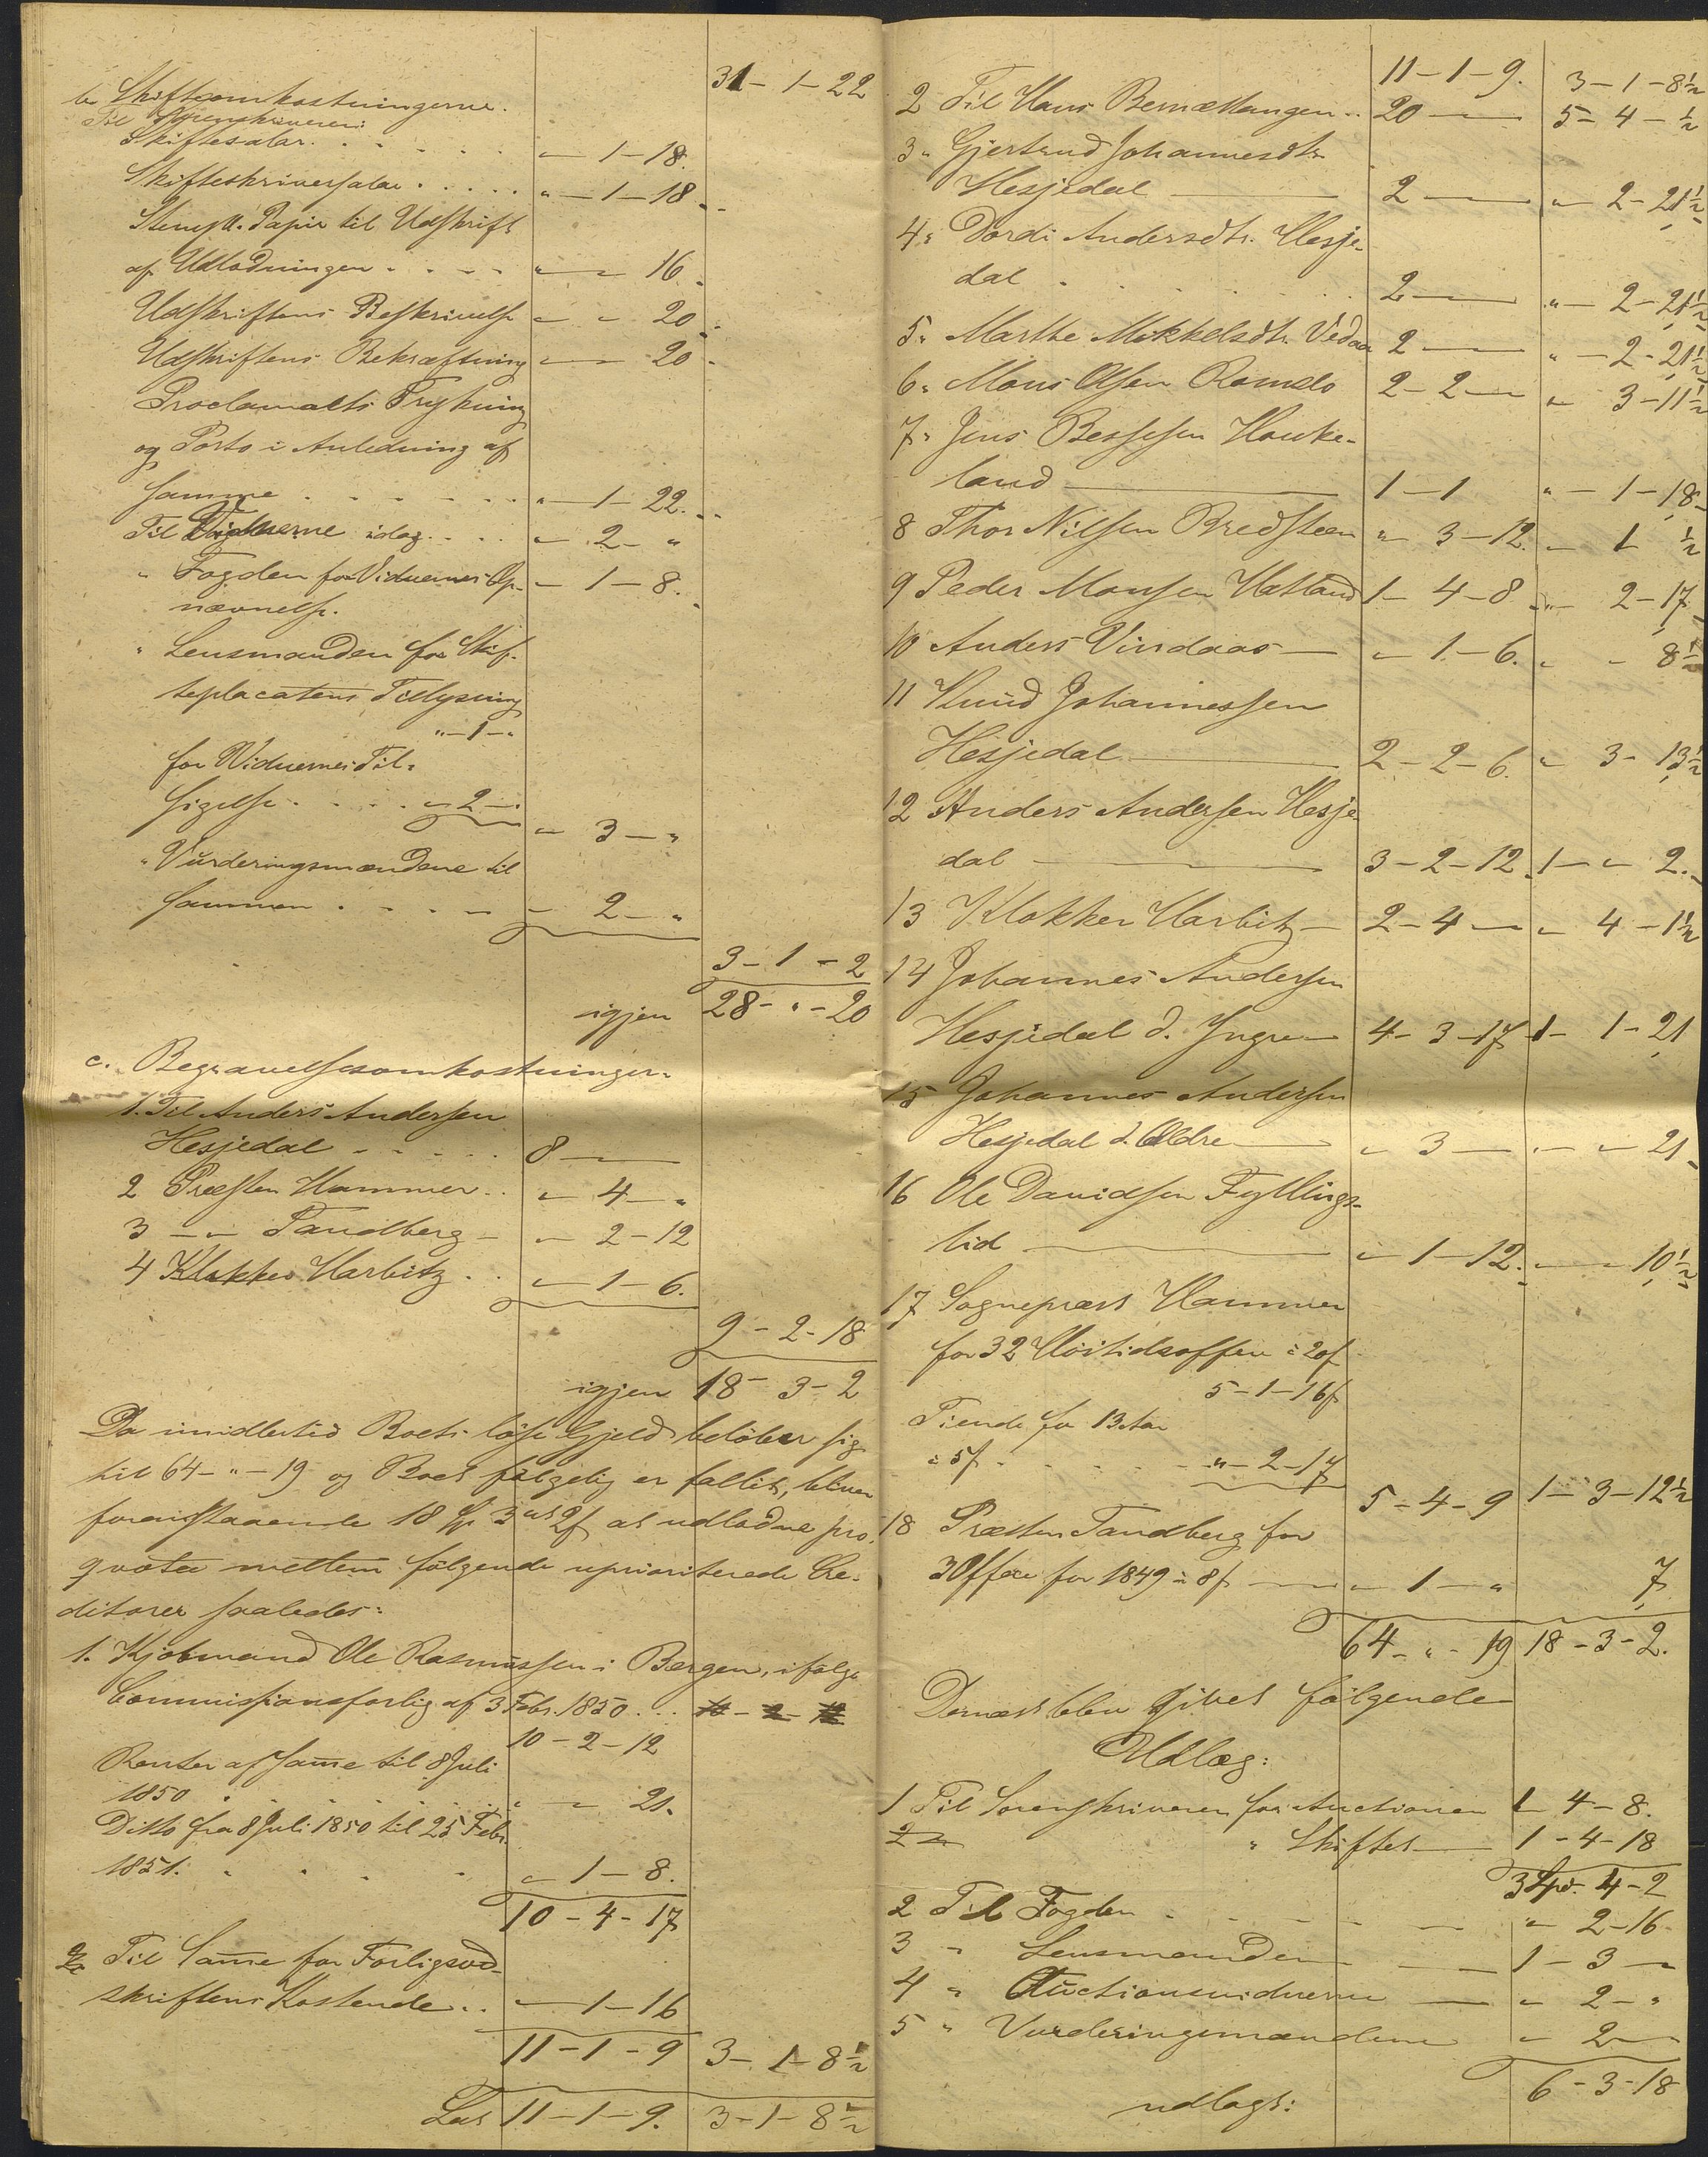 31 – 1 – 22
b. Skifteomkostningerne.
Til Sorenskriveren:
Skiftesalar. . . . . . " – 1 – 18.
Skifteskriversalar . . . . . " – 1 – 18.
Stempl. Papir til Udskrift
af Udlodningen . . . . " – " 16.
Udskriftens Beskrivelse " – " 20.
Udskriftens Bekræftning " – " 20.
Proclamaets Trykning
og Porto i Anledning af
samme . . . . . . " – 1 – 22.
Til Vidnerne idag . . . " – 2 – "
" Fogden for Vidnernes Op- " – 1 – 8.
nævnelse.
" Lensmanden for Skif-
teplacatens Tillysning
" – 1 – "
for Vidnernes Til-
sigelse . . . . " – 2 – "
" – 3 – "
" Vurderingsmændene til-
sammen . . . . " – 2 – "
3 – 1 – 2
igjen 28 – " – 20
c. Begravelsesomkostninger.
1. Til Anders Andersen
Hesjedal . . . . . 8 —
2 Præsten Hammer . . " – 4 – "
3 – " – Tandberg – " – 2 – 12
4 Klokker Harbitz . . " – 1 – 6.
9 – 2 – 18
igjen 18 – 3 – 2
Da imidlertid Boets löse Gjeld belöber sig
til 64 – " – 19 og Boet fölgelig er fallit, bliver
foranstaaende 18 Sp. 3 ort 2 s at udlodne pro
qvota mellem fölgende uprioriterede Cre-
ditorer saaledes:
1. Kjöbmand Ole Rasmussen i Bergen, ifölge
Commissionsforlig af 3 Febr. 1850 . . .
10 – 2 – 12
Renter af same til 8 Juli
1850 . . . . . . " – " 21.
Ditto fra 8 Juli 1850 til 25 Febr.
1851. . . . " – 1 – 8.
10 – 4 – 17
Til Same for Forligsud-
skriftens Kostende . . " – 1 – 16
11 – 1 – 9 3 – 1 – 8½
Lat 11 – 1 – 9. 3 – 1 – 8½
11 – 1 – 9. 3 – 1 – 8½
2 Til Hans Bernættangen . . 20 — 5 – 4 – ½
3 " Gjertrud Johannesdtr.
Hesjedal — 2 — " – 2 – 21½
4 " Dordi Andersdtr. Hesje-
dal . . . . . . 2 — " – 2 – 21½
5 " Marthe Mikkelsdtr. Vedaa 2 — " – 2 – 21½
6 " Mons Olsen Romslo 2 – 2 — " 3 – 11½
7 " Jens Bessesen Houke-
land — 1 – 1 " – 1 – 18
8 Thor Nilsen Bredsteen " 3 – 12. " 1 ½
9 Peder Monsen Hatland 1 – 4 – 8 " 2 – 17
10 Anders Vindaas — " – 1 – 6. " – 8½
11 Knud Johannessen
Hesjedal — 2 – 2 – 6. " 3 – 13½
12 Anders Andersen Hesje-
dal — 3 – 2 – 12. 1 – " 2.
13 Klokker Harbitz — 2 – 4 — " 4 – 1½
14 Johannes Andersen
Hesjedal d. Yngre — 4 – 3 – 17 1 – 1 – 21
15 Johannes Andersen
Hesjedal d. Ældre — " 3 — " – " – 21
16 Ole Davidsen Fyllings-
lid — " – 1 – 12. " – " 10½
17 Sognepræst Hammer
for 32 Höitidsoffere à 20 s
5 – 1 – 16 s
Tiende for 13 Aar
à 5 s . . . . . . " – 2 – 17
5 – 4 – 9 1 – 3 – 12½
18 Præsten Tandberg for
3 Offere for 1849 à 8 s — " 1 – " 7
64 – " – 19 18 – 3 – 2.
Dernæst blev givet fölgende
Udlæg:
1 Til Sorenskriveren for Auctionen 1 – 4 – 8.
" Skiftet — 1 – 4 – 18
3 Spd. 4 – 2
2 Til Fogden . . . . . " 2 – 16
3 " Lensmanden — 1 – 3 –
4 " Auctionsvidnerne — " 2 – "
5 " Vurderingsmændene " 2 –
6 – 3 – 18
udlagt: